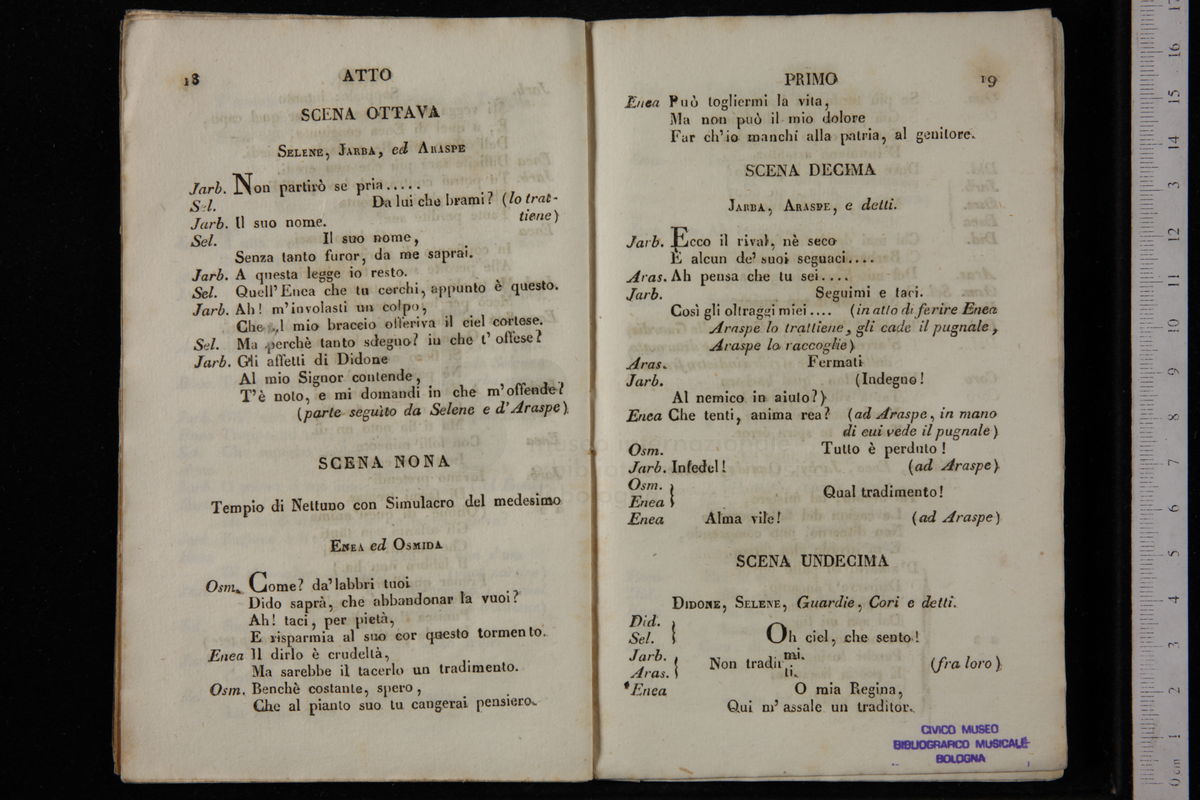 18
ATTO
SCENA OTTAVA
SELENE, JARBA, ed ARASPE
Jarb. Non partirò se pria.....
Sel. Da lui che brami? (lo trat-
tiene)
Jarb. Il suo nome.
Sel. Il suo nome,
Senza tanto furor, da me saprai.
Jarb. A questa legge io resto.
Sel. Quell' Enea che tu cerchi, appunto è questo.
Jarb. Ah! m'involasti un colpo,
Che al mio braccio offeriva il ciel cortese.
Sel. Ma perchè tanto sdegno? in che t' offese?
Jarb. Gli affetti di Didone
Al mio Signor contende,
T'è noto, e mi domandi in che m'offende?
(parte seguìto da Selene e d'Araspe)
SCENA NONA
Tempio di Nettuno con Simulacro del medesimo
ENEA ed OSMIDA
Osm. Come? da' labbri tuoi
Dido saprà, che abbandonar la vuoi?
Ah! taci, per pietà,
E risparmia al suo cor questo tormento.
Enea Il dirlo è crudeltà,
Ma sarebbe il tacerlo un tradimento.
Osm. Benchè costante, spero,
Che al pianto suo tu cangerai pensiero.
PRIMO
19
Enea Può togliermi la vita,
Ma non può il mio dolore
Far ch'io manchi alla patria, al genitore.
SCENA DECIMA
JARBA, ARASPE, e detti.
Jarb. Ecco il rival, nè seco
È alcun de' suoi seguaci....
Aras. Ah pensa che tu sei....
Jarb. Seguimi e taci.
Così gli oltraggi miei.... (in atto di ferire Enea
Araspe lo trattiene, gli cade il pugnale,
Araspe lo raccoglie)
Aras. Fermati
Jarb. (Indegno!
Al nemico in aiuto?)
Enea Che tenti, anima rea? (ad Araspe, in mano
di cui vede il pugnale)
Osm. Tutto è perduto!
Jarb. Infedel! (ad Araspe)
Osm. }
Enea } Qual tradimento!
Enea Alma vile! (ad Araspe)
SCENA UNDECIMA
DIDONE, SELENE, Guardie, Cori e detti.
Did. }
Sel. } Oh ciel, che sento!
Jarb. } Non tradirmi.
Aras. } ti. (fra loro)
*Enea O mia Regina,
Qui m' assale un traditor.
CIVICO MUSEO
BIBLIOGRAFICO MUSICALE
BOLOGNA
museo internazionale